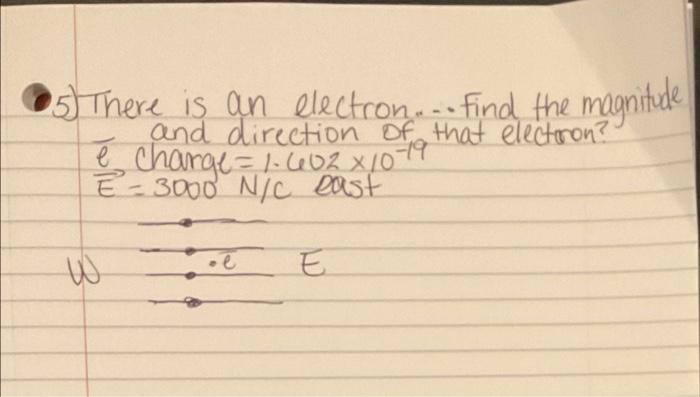 5) There is an electron.... find the magnitude
and direction of that electron?
e̅ charge = 1.602 x 10⁻¹⁹
E⃗ = 3000 N/C east
W .e̅ E